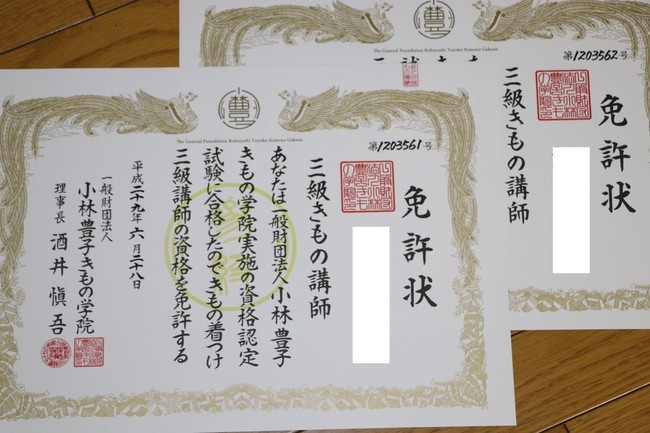 The General Foundation Kobayashi Toyoko Kimono Gakuin
第1203561号
免許状
三級きもの講師
あなたは一般財団法人小林豊子
きもの学院実施の資格認定
試験に合格したのできもの着つけ
三級講師の資格を免許する
平成二十九年六月二十八日
一般財団法人
小林豊子きもの学院
理事長 酒井愼吾
The General Foundation Kobayashi Toyoko Kimono Gakuin
第1203562号
免許状
三級きもの講師